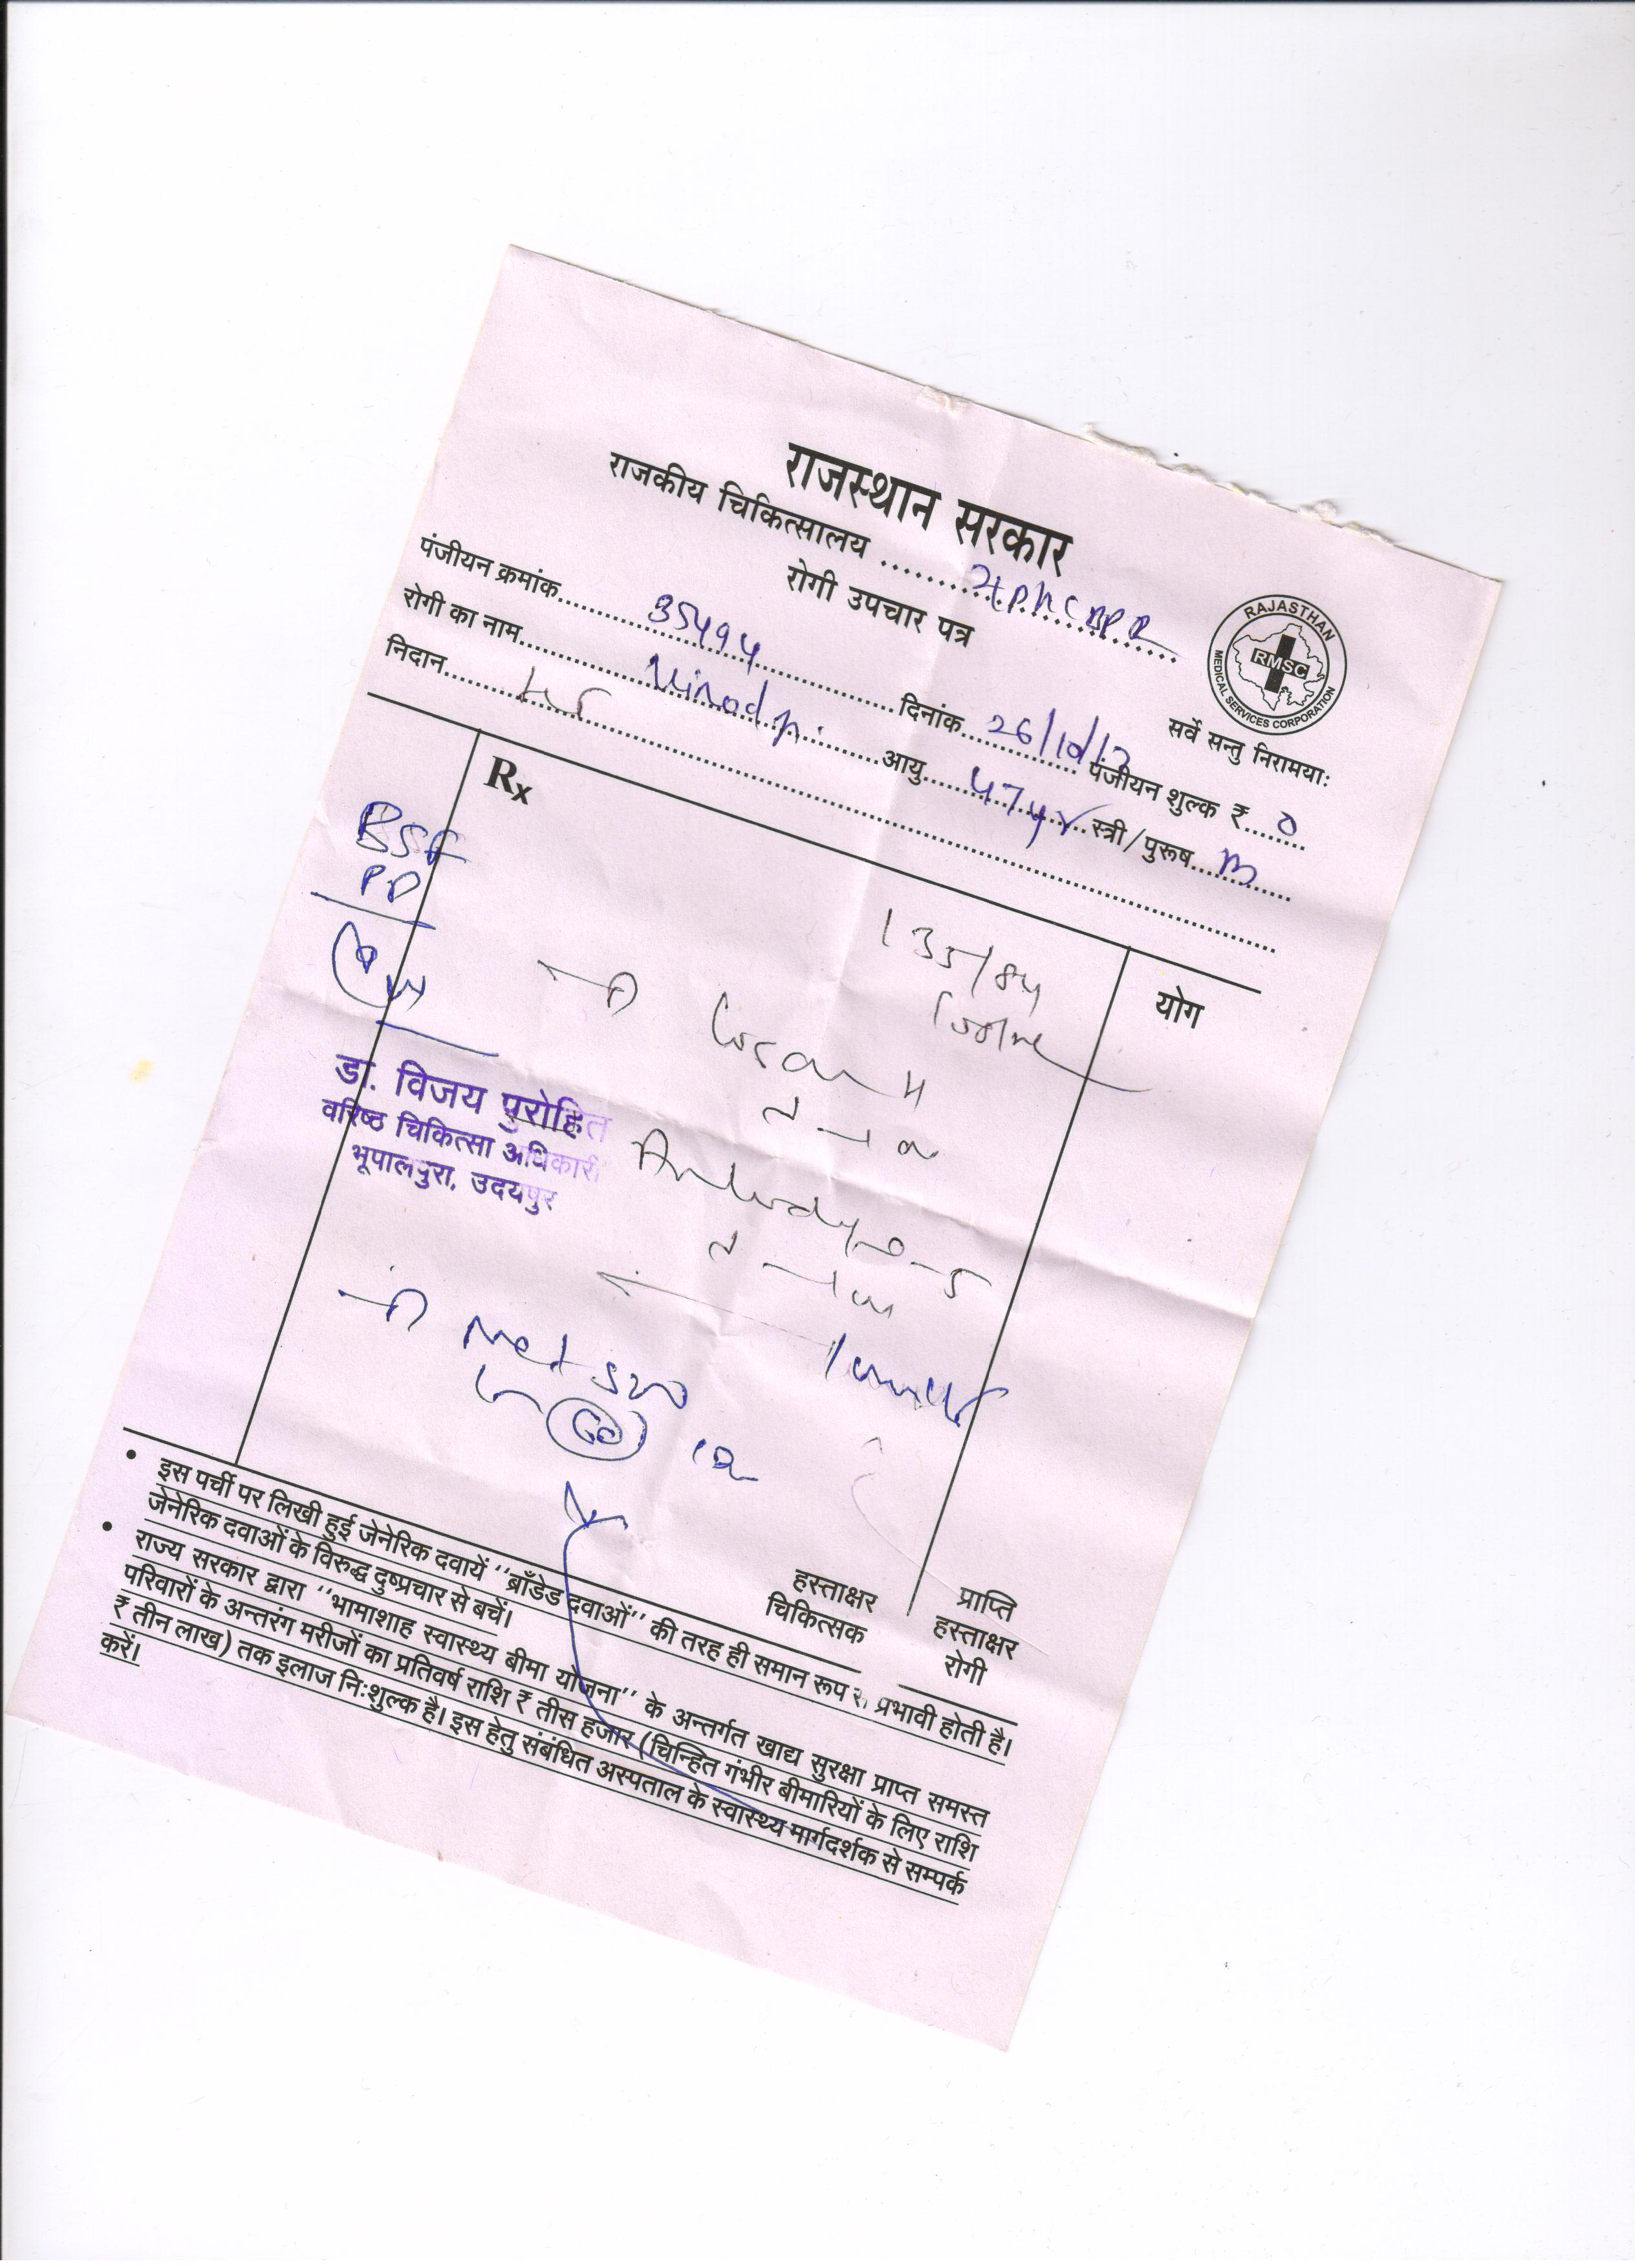 राजस्थान सरकार
राजकीय चिकित्सालय
रोगी उपचार पत्र
RAJASTHAN
RMSC
MEDICAL SERVICES CORPORATION
सर्वे सन्तु निरामयाः
पंजीयन क्रमांक 35494 दिनांक 26/10/17 पंजीयन शुल्क ₹ 0
रोगी का नाम Vinod ji आयु 47 yr स्त्री/पुरूष M
निदान
Rx
योग
BSF
PP
135/84
डॉ. विजय पुरोहित
वरिष्ठ चिकित्सा अधिकारी
भूपालपुरा, उदयपुर
Losar H
Amlodipine-5
Met 500
हस्ताक्षर
चिकित्सक
प्राप्ति
हस्ताक्षर
रोगी
• इस पर्ची पर लिखी हुई जेनेरिक दवायें ''ब्राँडेड दवाओं'' की तरह ही समान रूप से प्रभावी होती है।
जेनेरिक दवाओं के विरुद्ध दुष्प्रचार से बचें।
• राज्य सरकार द्वारा ''भामाशाह स्वास्थ्य बीमा योजना'' के अन्तर्गत खाद्य सुरक्षा प्राप्त समस्त
परिवारों के अन्तरंग मरीजों का प्रतिवर्ष राशि ₹ तीस हजार (चिन्हित गंभीर बीमारियों के लिए राशि
₹ तीन लाख) तक इलाज निःशुल्क है। इस हेतु संबंधित अस्पताल के स्वास्थ्य मार्गदर्शक से सम्पर्क
करें।